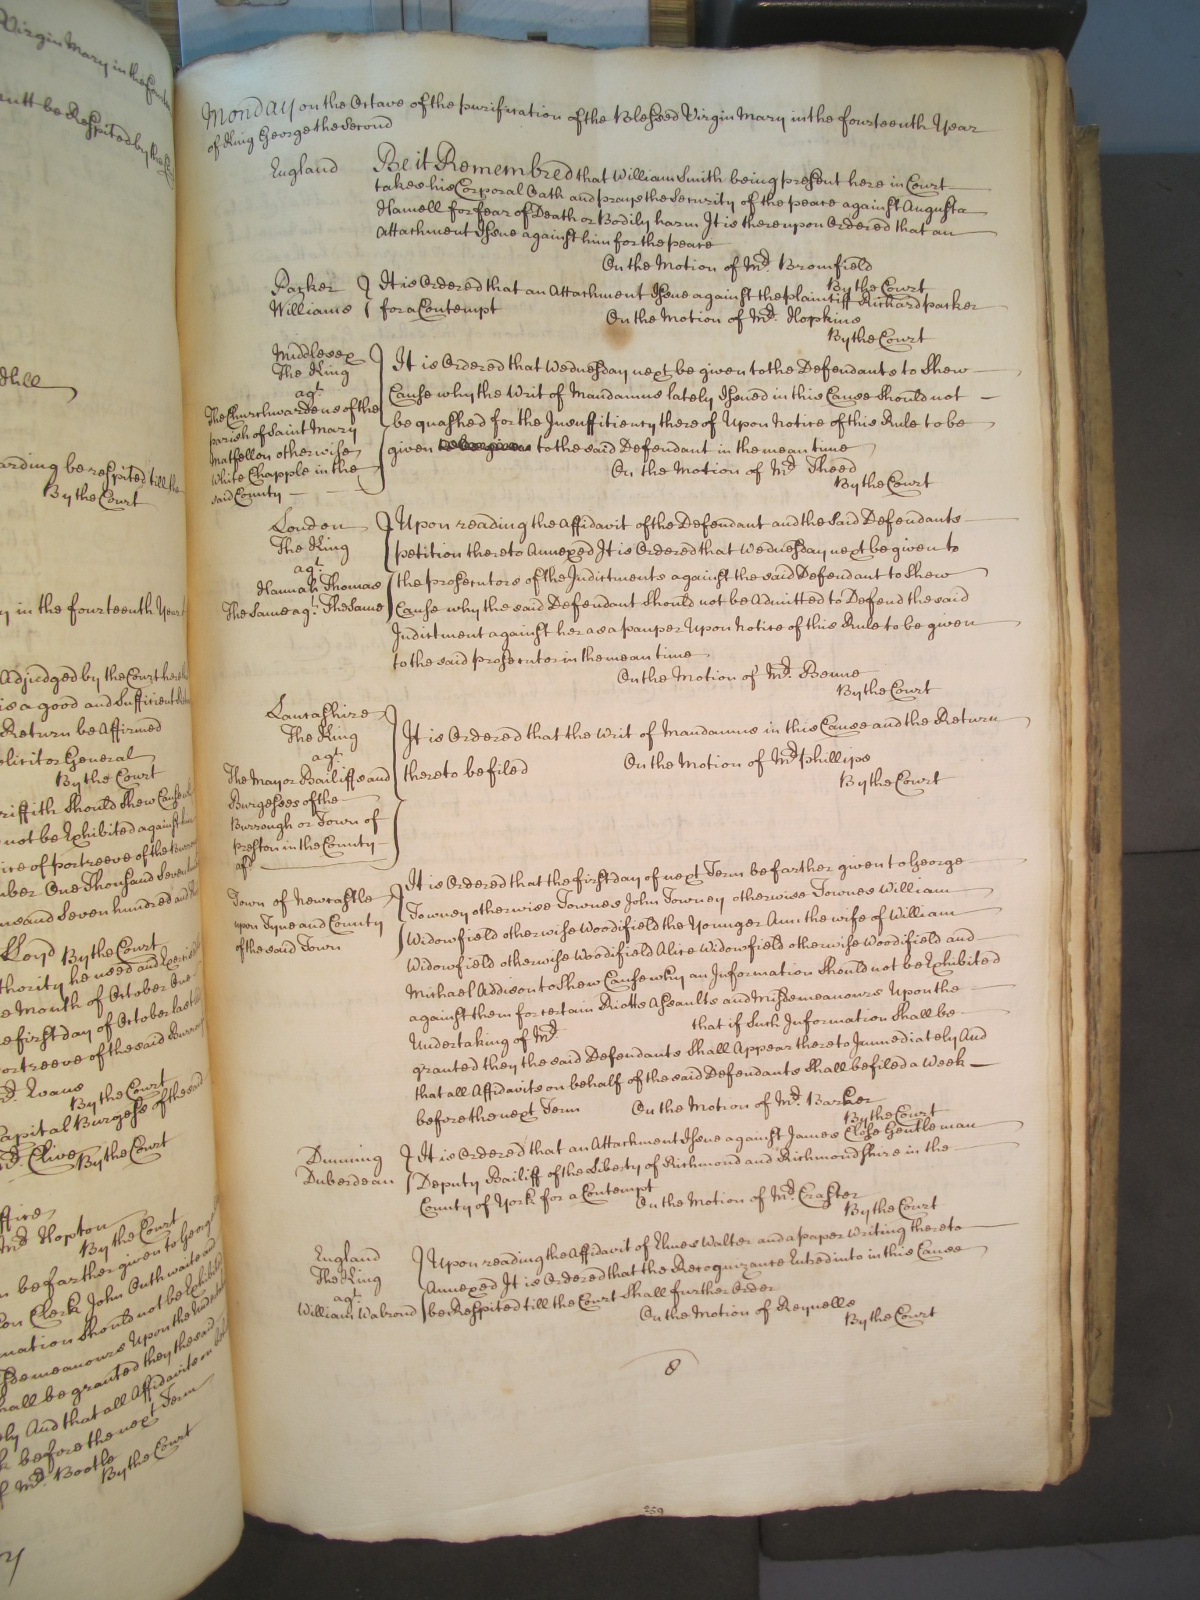 Virgin Mary in the
be Respited by the
hill
arding be respited till the
By the Court
y in the fourteenth Year
Adjudged by the Court
is a good and Sufficient
Return be Affirmed
licitor General
By the Court
riffith Should Shew Cause
not be Exhibited against
ice of portreeve of the
ber One Thousand Seven
and Seven hundred and
Lloyd By the Court
thority he used and
e Month of October One
e first day of October last
ortreeve of the said Burrough
Evans
By the Court
Capital Burgess of the said
Md. Clive By the Court
ffice
Md Hopton
By the Court
n be farther given to George
on Clerk John Outhwaite and
mation Should not be Exhibited
sdemeanours Upon the
hall be granted they the said
ly And that all Affidavits on
k before the next Term
f Md. Bootle
By the Court
Monday on the Octave of the purification of the Blessed Virgin Mary in the fourteenth Year
of King George the Second
England Be it Remembred that William Smith being present here in Court
takes his Corporal Oath and prays the Security of the peace against Augusta
Hamell for fear of Death or Bodily harm It is thereupon Ordered that an
Attachment Issue against him for the peace
On the Motion of Md. Bromfield
By the Court
Parker It is Ordered that an Attachment Issue against the plaintiff Richard parker
Williams for a Contempt On the Motion of Md. Hopkins
By the Court
Middlesex
The King
agt.
The Churchwardens of the
parish of Saint Mary
Matfellon otherwise
White Chapple in the
said County
It is Ordered that Wednesday next be given to the Defendants to Shew
Cause why the Writ of Mandamus lately Issued in this Cause Should not
be quashed for the Insufficiency thereof Upon Notice of this Rule to be
given to the said Defendant in the mean time
On the Motion of Md Theed
By the Court
London
The King
agt.
Hannah Thomas
The Same agt. The Same
Upon reading the Affidavit of the Defendant and the Said Defendants
petition thereto Annexed It is Ordered that Wednesday next be given to
the prosecutors of the Indictments against the said Defendant to Shew
Cause why the said Defendant Should not be Admitted to Defend the said
Indictment against her as a pauper Upon Notice of this Rule to be given
to the said prosecutor in the mean time
On the Motion of Md. Benne
By the Court
Lancashire
The King
agt.
The Mayor Bailiffs and
Burgesses of the
Burrough or Town of
preston in the County
afd.
It is Ordered that the Writ of Mandamus in this Cause and the Return
thereto be filed On the Motion of Md phillips
By the Court
Town of Newcastle
upon Tyne and County
of the said Town
It is Ordered that the first day of next Term be farther given to George
Towney otherwise Townes John Towney otherwise Townes William
Widowfield otherwise Woodifield the Younger Ann the wife of William
Widowfield otherwise Woodifield Alice Widowfield otherwise Woodifield and
Michael Addison to Shew Cause why an Information Should not be Exhibited
against them for certain Riotts Assaults and Misdemeanours Upon the
Undertaking of Md that if Such Information Shall be
granted they the said Defendants Shall Appear thereto Immediately And
that all Affidavits on behalf of the said Defendants Shall be filed a Week
before the next Term On the Motion of Md. Barker
By the Court
Dunning It is Ordered that an Attachment Issue against James Close Gentleman
Duberdean Deputy Bailiff of the Liberty of Richmond and Richmondshire in the
County of York for a Contempt On the Motion of Md. Craster
By the Court
England
The King
agt.
William Wabrond
Upon reading the Affidavit of Elmes Walter and a paper Writing thereto
Annexed It is Ordered that the Recognizance Entred into in this Cause
be Respited till the Court Shall further Order
On the Motion of Reynelle
By the Court
8
259